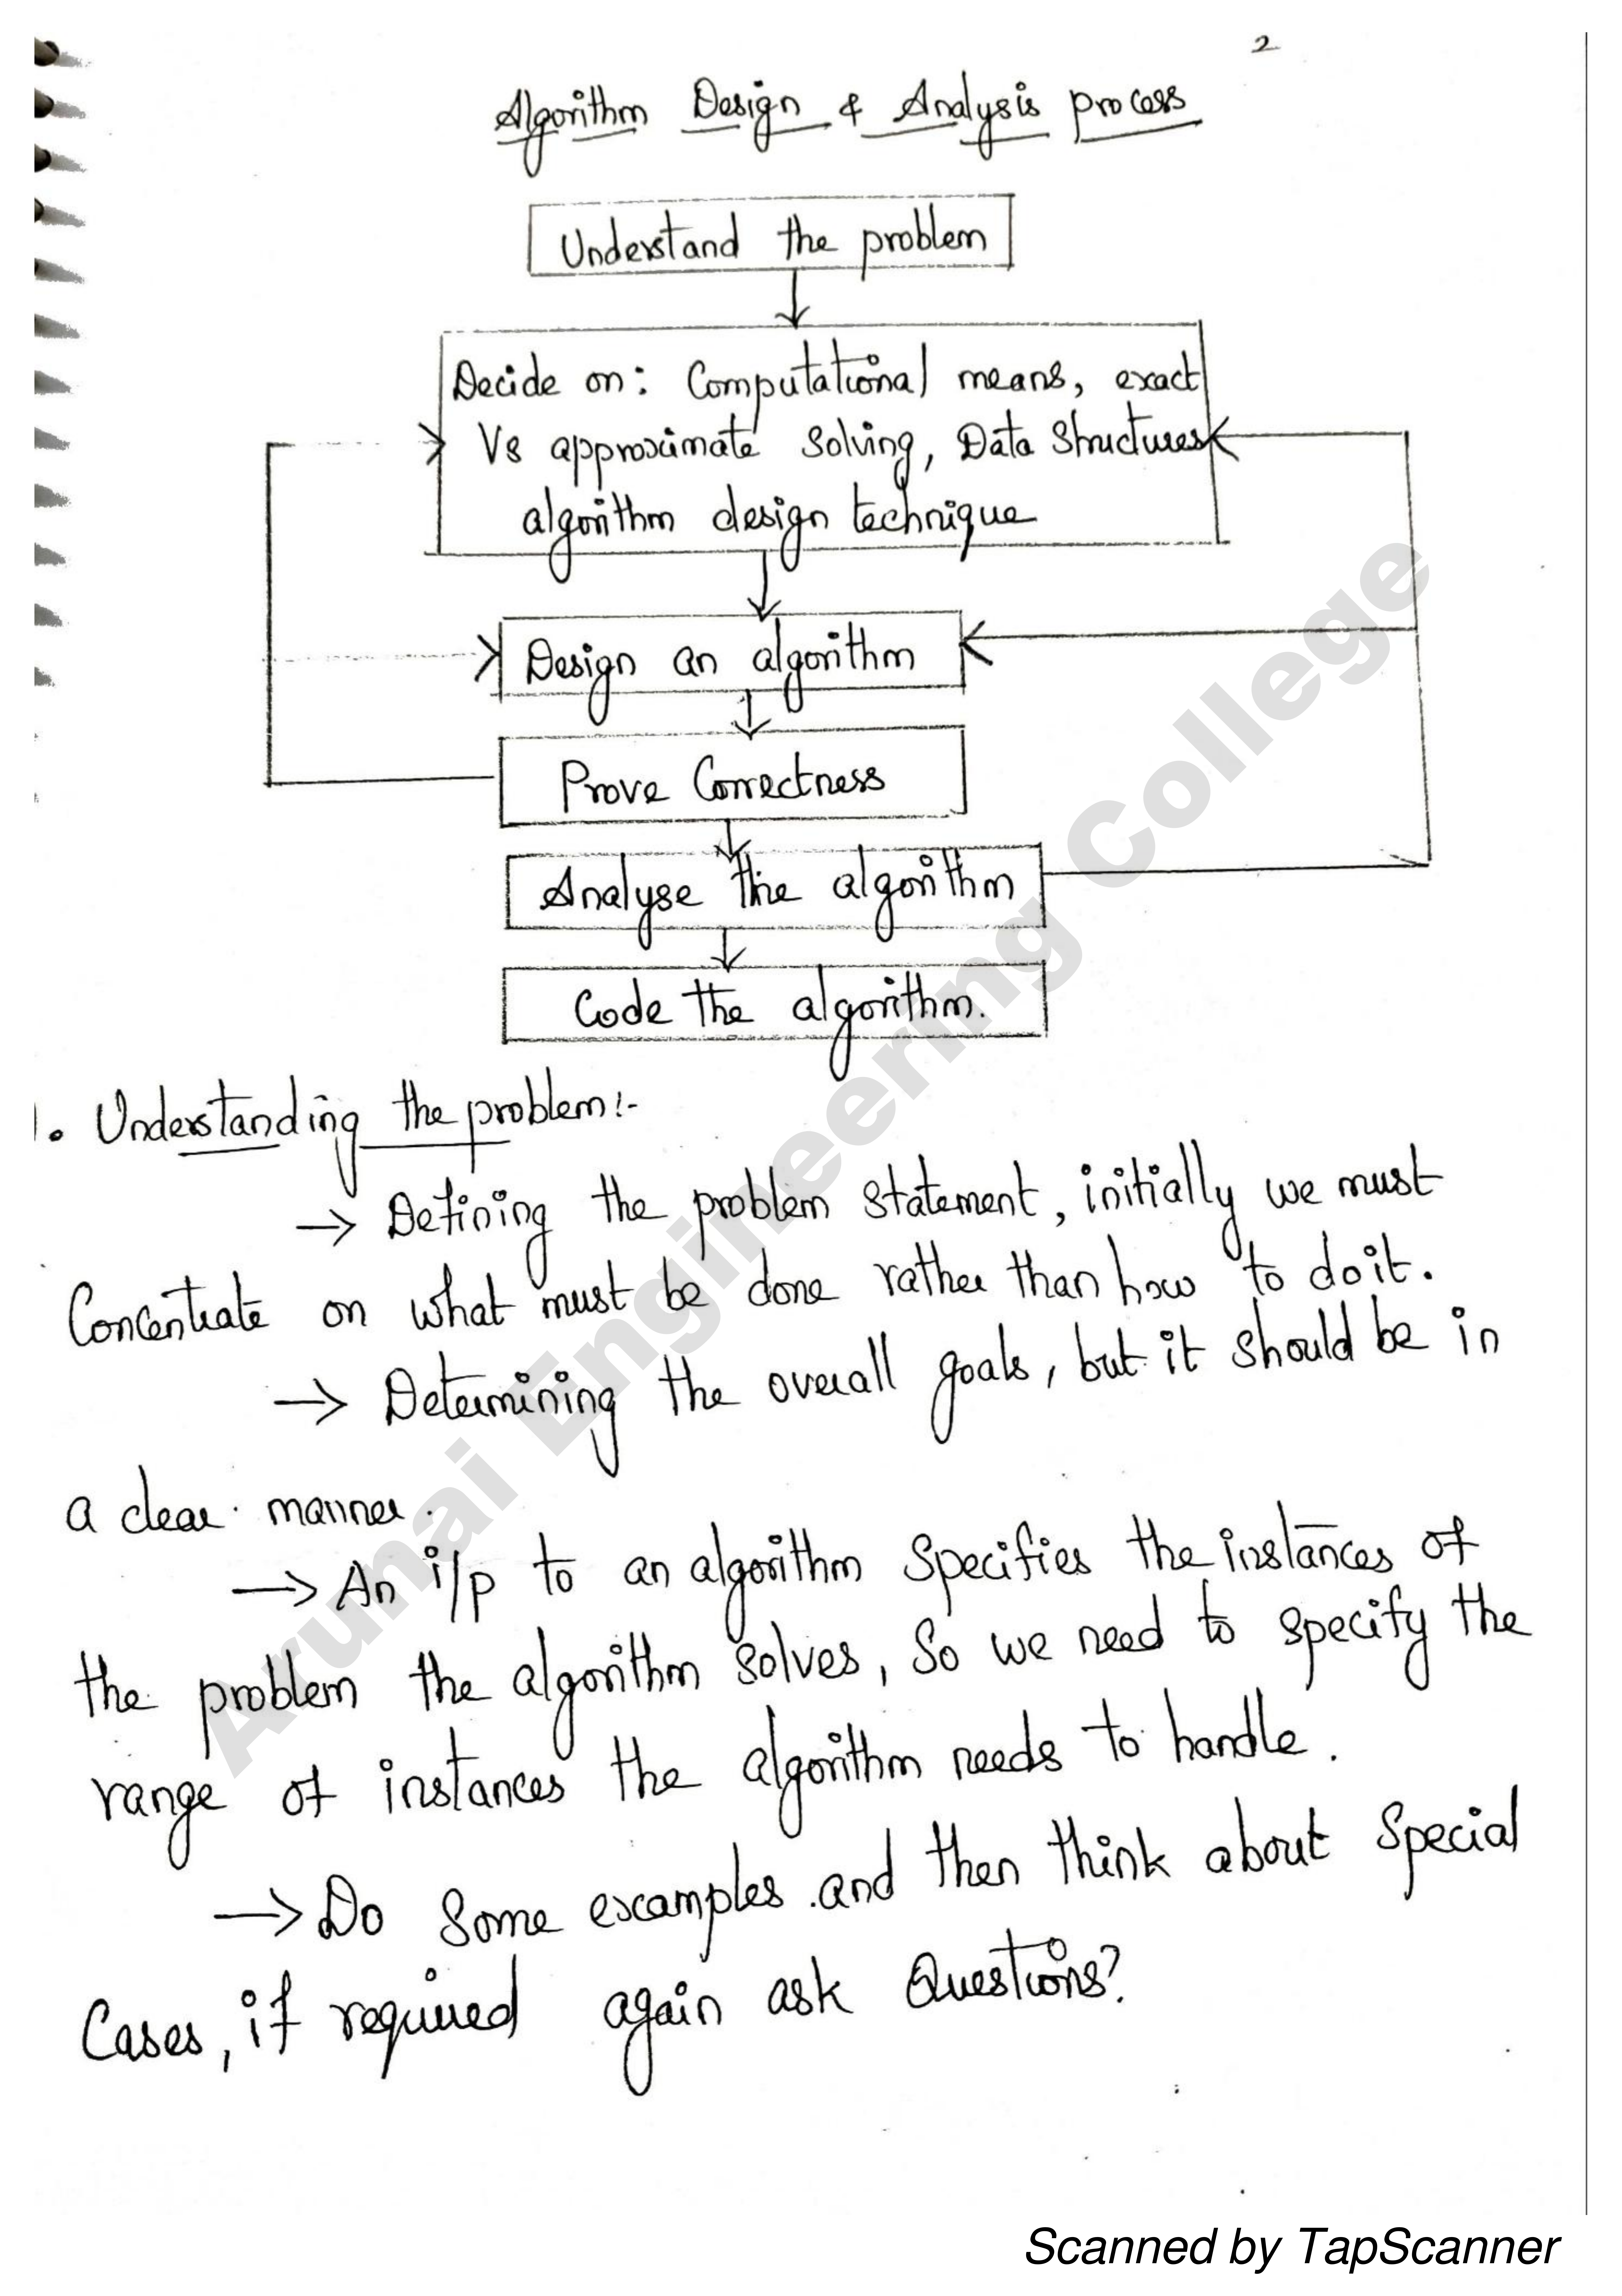 2
Algorithm Design & Analysis process
Understand the problem
Decide on: Computational means, exact
Vs approximate solving, Data Structures
algorithm design technique
Design an algorithm
Prove Correctness
Analyse the algorithm
Code the algorithm.
1. Understanding the problem:-
→ Defining the problem statement, initially we must
Concentrate on what must be done rather than how to do it.
→ Determining the overall goals, but it should be in
a clear manner.
→ An i/p to an algorithm specifies the instances of
the problem the algorithm solves, so we need to specify the
range of instances the algorithm needs to handle.
→ Do some examples and then think about special
Cases, if required again ask Questions?
Arunai Engineering College
Scanned by TapScanner